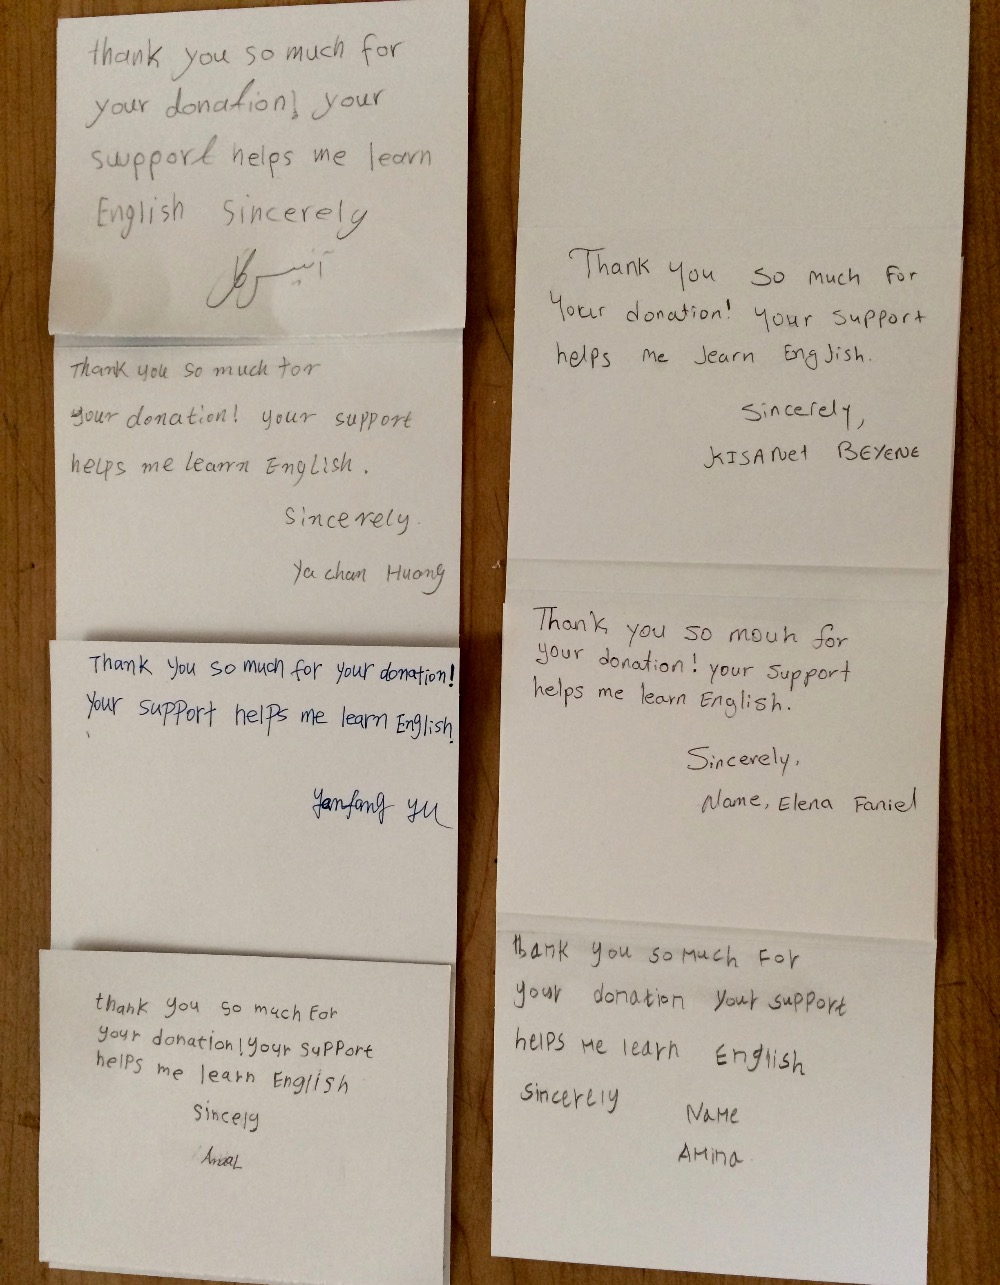 thank you so much for
your donation! your
swpport helps me learn
English sincerely
Thank you so much for
your donation! your support
helps me learn English.
Sincerely.
Ya chan Huong
Thank you so much for your donation!
Your support helps me learn English!
Yanfang Yu
thank you so much for
your donation! your support
helps me learn English
Sincely
Amal
Thank you so much for
Your donation! your support
helps me learn English.
Sincerely,
KISANet BEYENE
Thank you so mouh for
your donation! your support
helps me learn English.
Sincerely,
Name, Elena Faniel
thank you so much For
your donation your support
helps me learn English
sincerely
Name
Amina